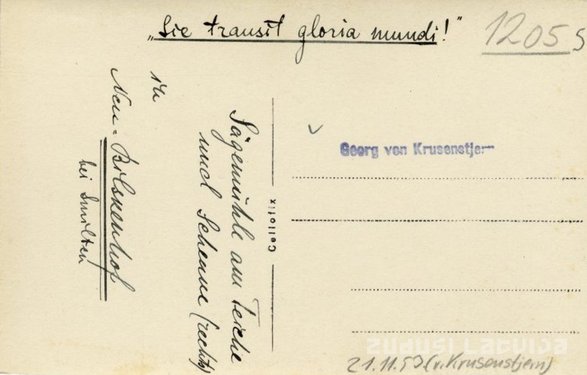 „Sic transit gloria mundi!"
12055
Sägemühle am Teiche
und Scheune (rechts)
in
Neu-Bilskenhof
bei Smilten
Cellofix
Georg von Krusenstjern
ZUDUSI LATVIJA
21.11.53 (v. Krusenstjern)